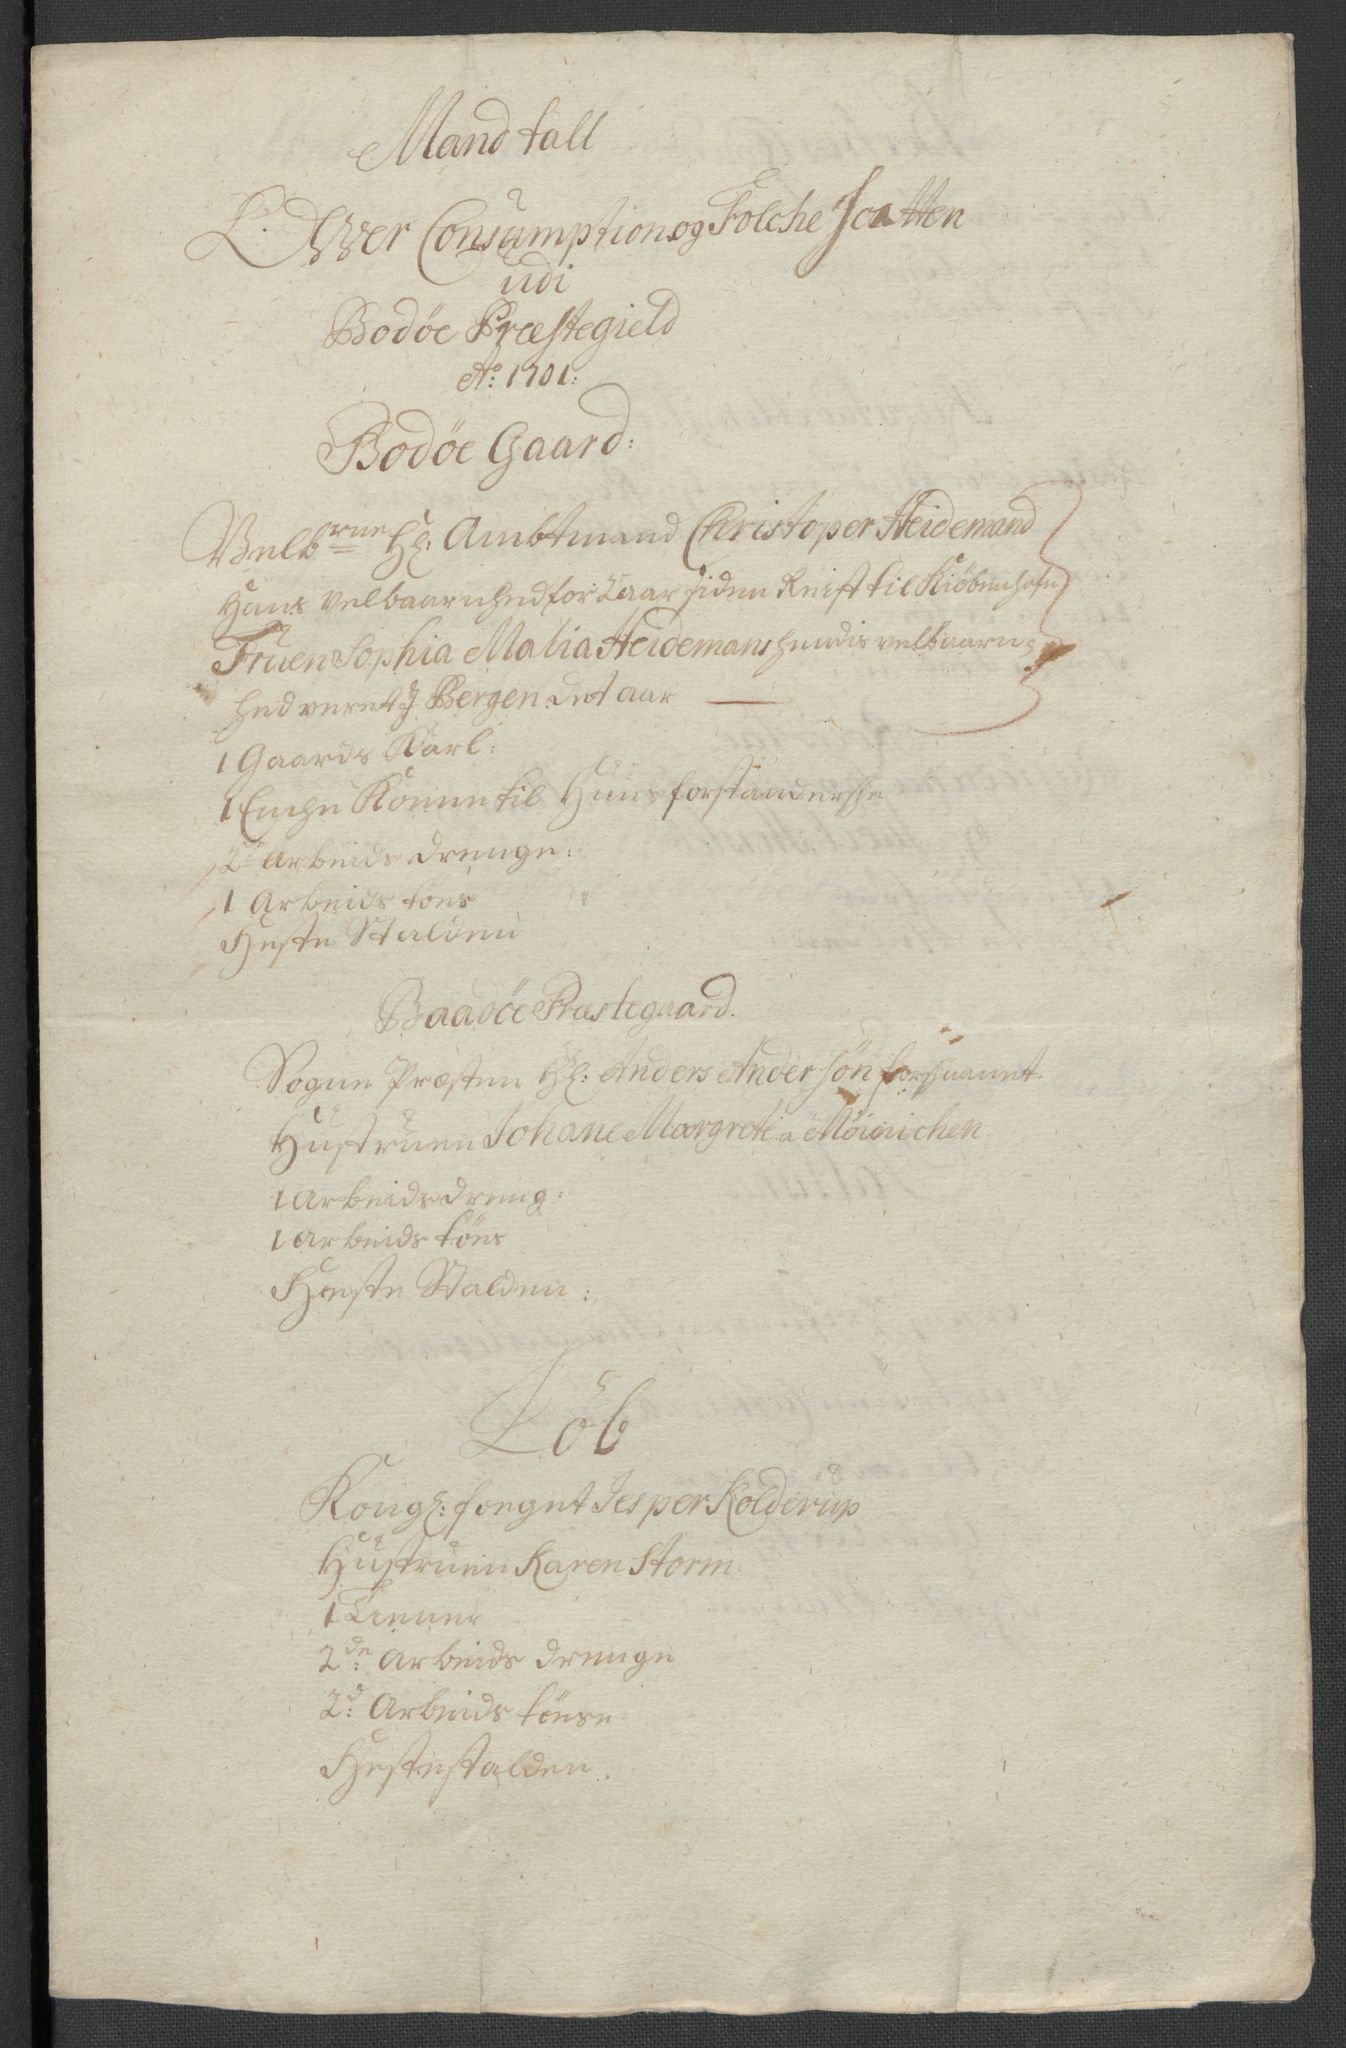 Mandtall
Over Consumption og Folche Scatten
udi
Bodøe Præstegield
Ao: 1701:
Bodøe Gaard:
Velb^rne Hr: Ambtmand Christoper Heidemand
Hans velbaarnhed for 2 aar siden Reist til Kiøbenhafn
Fruen Sophia Malia Heidemans hendis velbaarn=
hed veret J Bergen det aar
1 Gaards Karl:
1 Enche Konne til Huusforstandersche
2de Arbeids drenge:
1 Arbeids tøes
Heste Stalden
Baadøe Præstegaard.
Sogne Præsten Hr: Anders Andersøn forschaanet.
Hustruen Johane Margrete a Møinichen
1 Arbeidsdreng:
1 Arbeids tøes
Heste Stalden:
Løb
Kongl: foeget Jesper Kolderup
Hustruen Karen Storm
1 Tiener
2de: Arbeids drenge
2d: Arbeids tøese
Hestestalden.